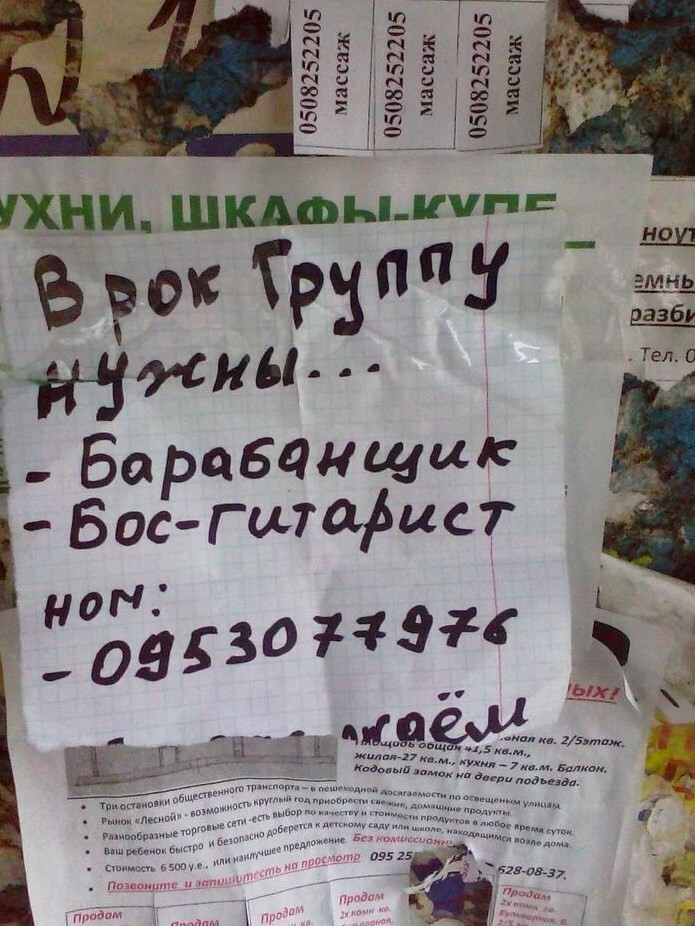 0508252205
массаж
0508252205
массаж
0508252205
массаж
УХНИ, ШКАФЫ-КУПЕ
ноут
разби
. Тел. 0
В рок Группу
нужны...
- Барабанщик
- Бос-гитарист
ном:
- 0953077976
ЫХ!
кв. 2/5этаж.
Площадь общая 41,5 кв.м.,
жилая-27 кв.м., кухня – 7 кв.м. Балкон.
Кодовый замок на двери подъезда.
• Три остановки общественного транспорта – в пешеходной досягаемости по освещеным улицам.
• Рынок «Лесной» - возможность круглый год приобрести свежие, домашние продукты.
• Разнообразные торговые сети -есть выбор по качеству и стоимости продуктов в любое время суток.
• Ваш ребенок быстро и безопасно доберется к детскому саду или школе, находящимся возле дома.
• Стоимость 6 500 у.е., или наилучшее предложение. Без комиссионн
• Позвоните и запишитесть на просмотр 095 25
628-08-37.
Продам
Продам
Продам
кв.
Продам
2х комн кв.
Продам
2х комн кв.